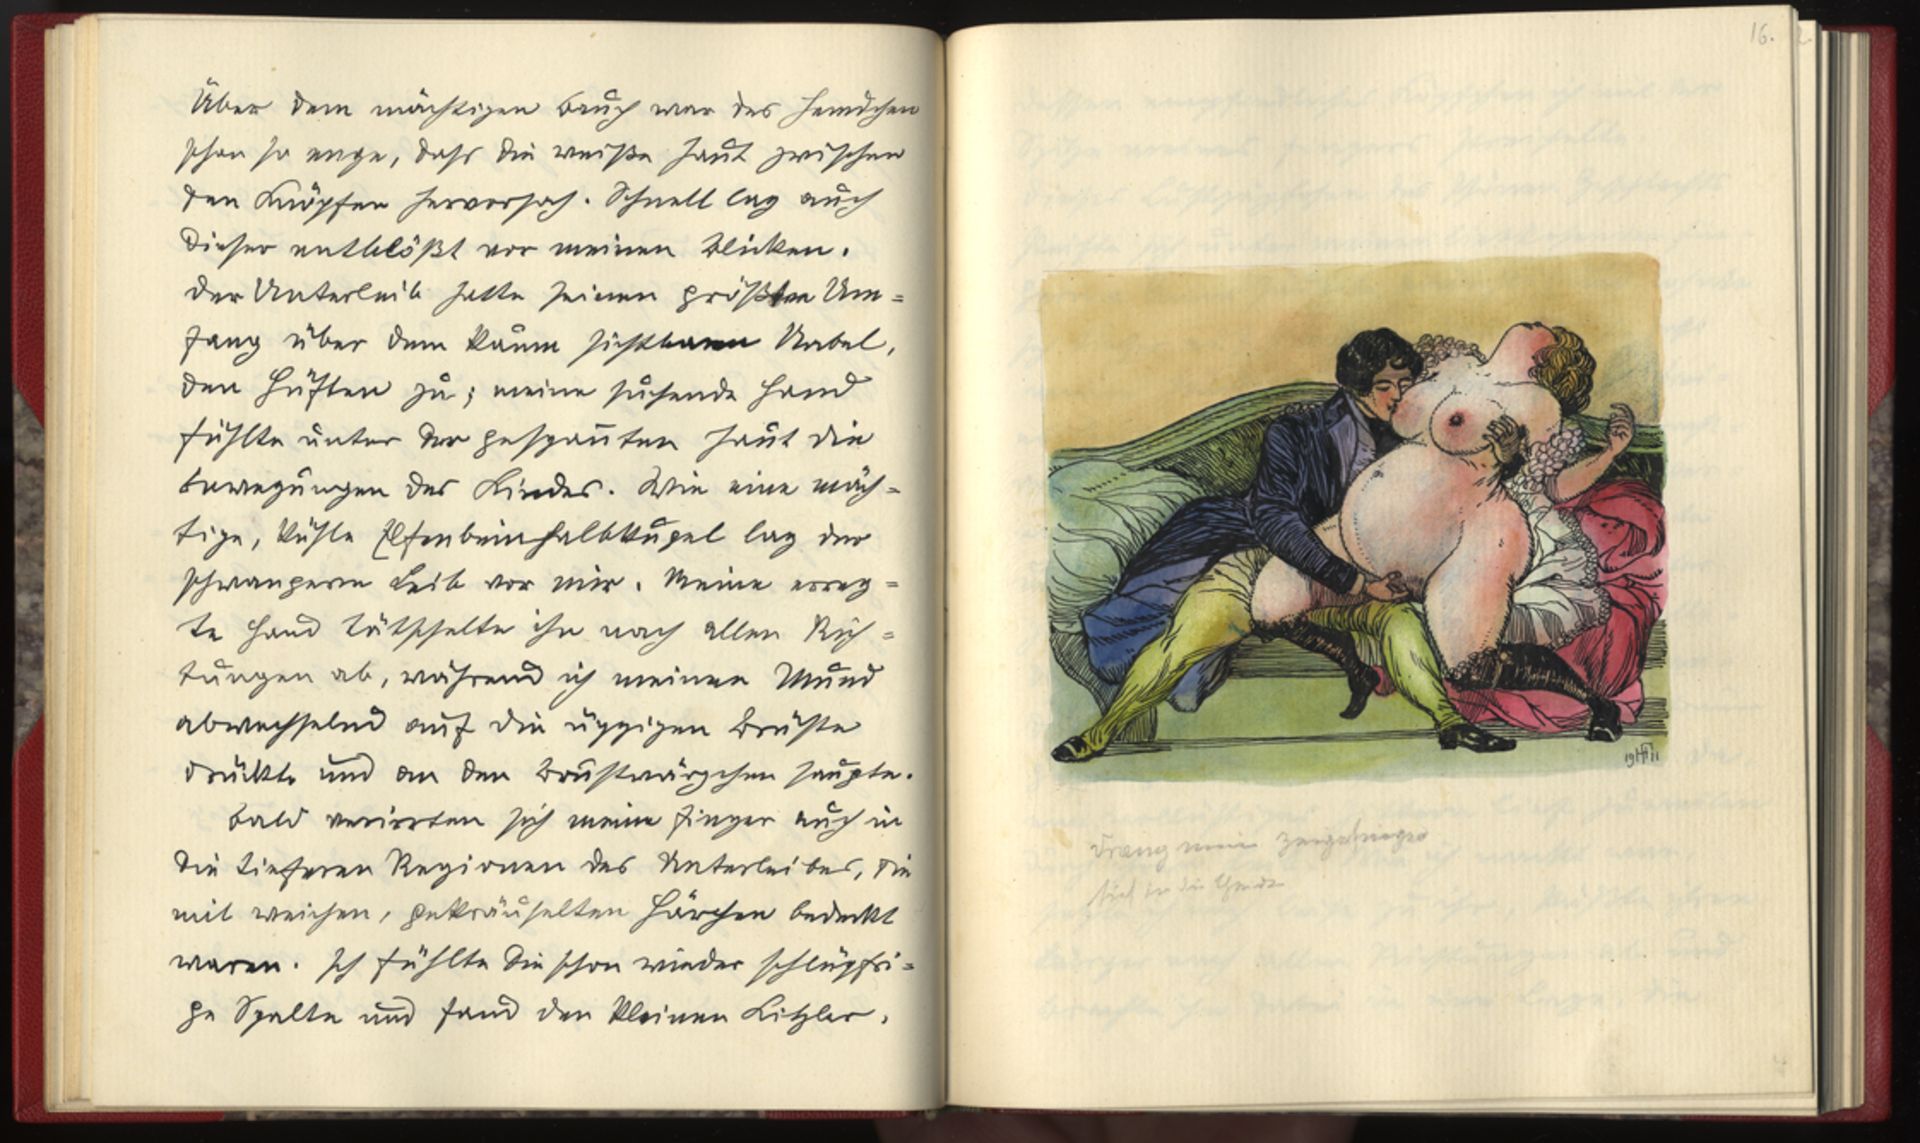 Über dem mächtigen Bauch war das Hemdchen
schon so enge, dass die weiße Haut zwischen
den Knöpfen hervorsah. Schnell lag auch
dieser entblößt vor meinen Blicken.
Der Unterleib hatte seinen größten Um=
fang über dem kaum sichtbaren Nabel,
den Hüften zu; meine suchende Hand
fühlte unter der gespannten Haut die
Bewegungen des Kindes. Wie eine mäch=
tige, kühle Elfenbeinhalbkugel lag der
schwangere Leib vor mir. Meine erreg=
te Hand tätschelte ihn nach allen Rich=
tungen ab, während ich meinen Mund
abwechselnd auf die üppigen Brüste
drückte und an den Brustwärzchen saugte.
Bald verirrten sich meine Finger auch in
die tieferen Regionen des Unterleibes, die
mit weichen, gekräuselten Härchen bedeckt
waren. Ich fühlte die schon wieder schlüpfri=
ge Spalte und fand den kleinen Kitzler,
16.
19 11
drang mein Zeigefinger
tief in die Scheide